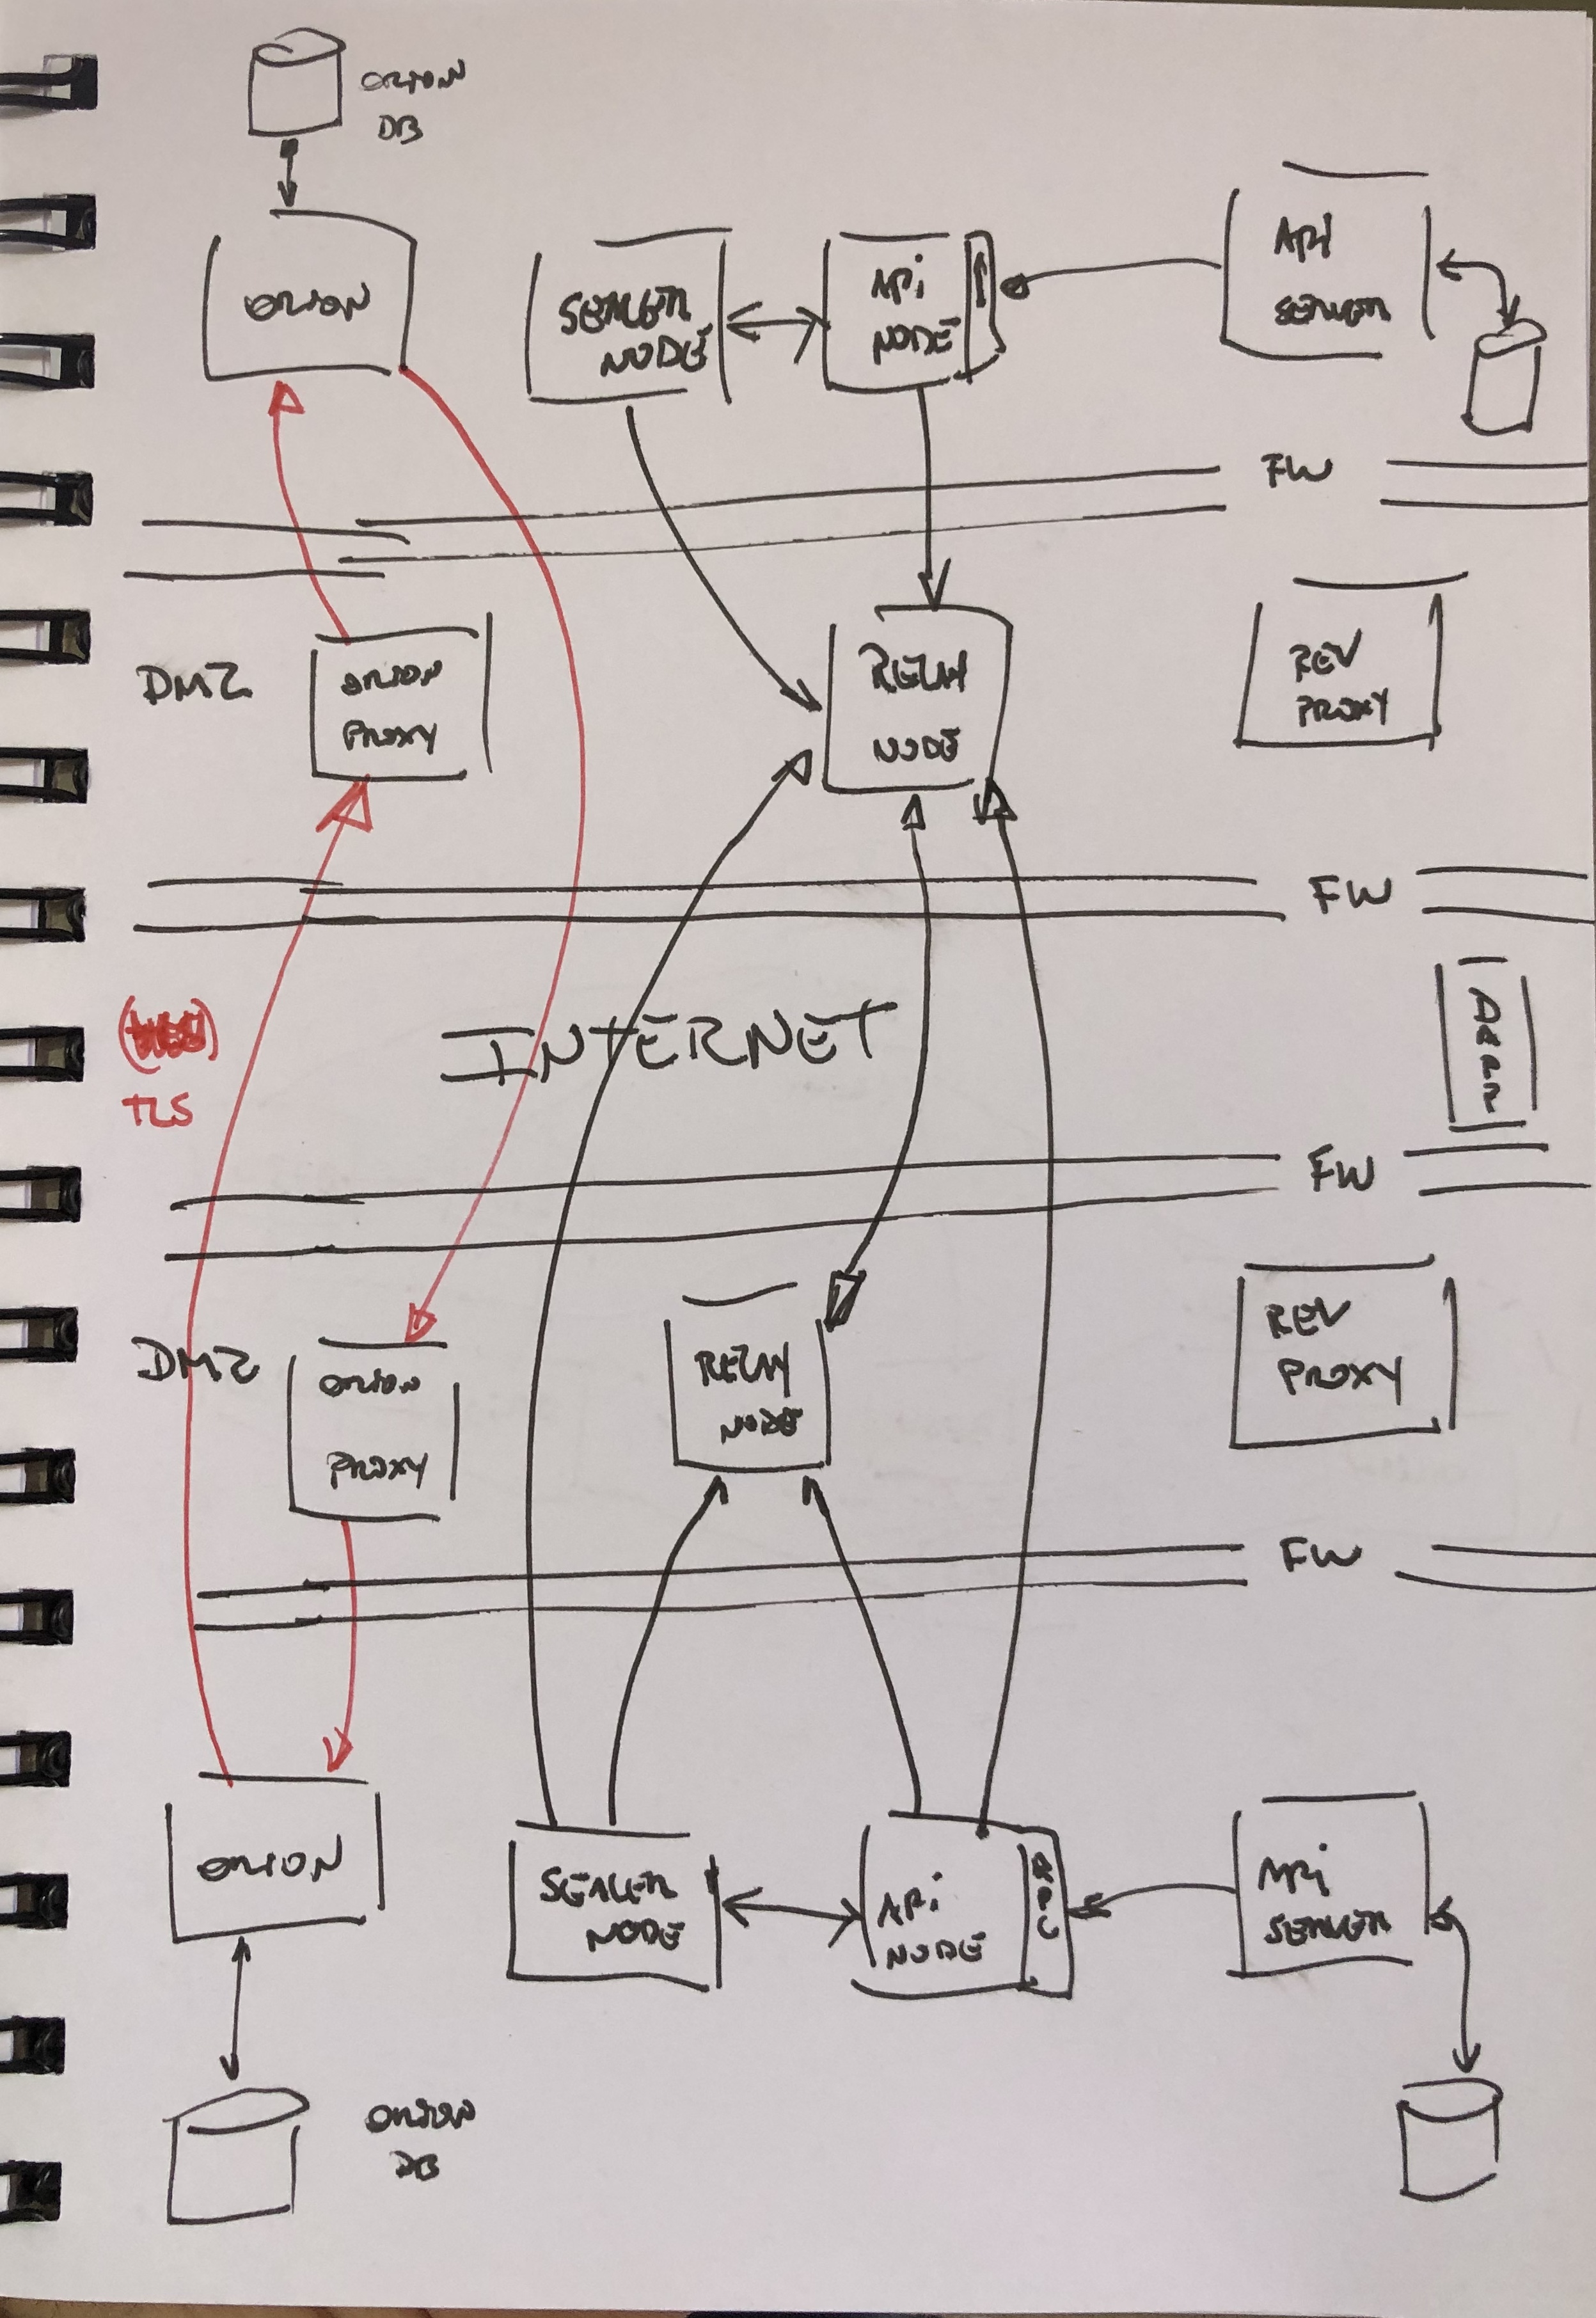 ORION
DB
ORION
SEALER
NODE
API
NODE
API
SERVER
FW
DMZ
ORION
PROXY
RELAY
NODE
REV
PROXY
FW
INTERNET
TLS
FW
DMZ
ORION
PROXY
RELAY
NODE
REV
PROXY
FW
ORION
SEALER
NODE
API
NODE
RPC
API
SERVER
ORION
DB